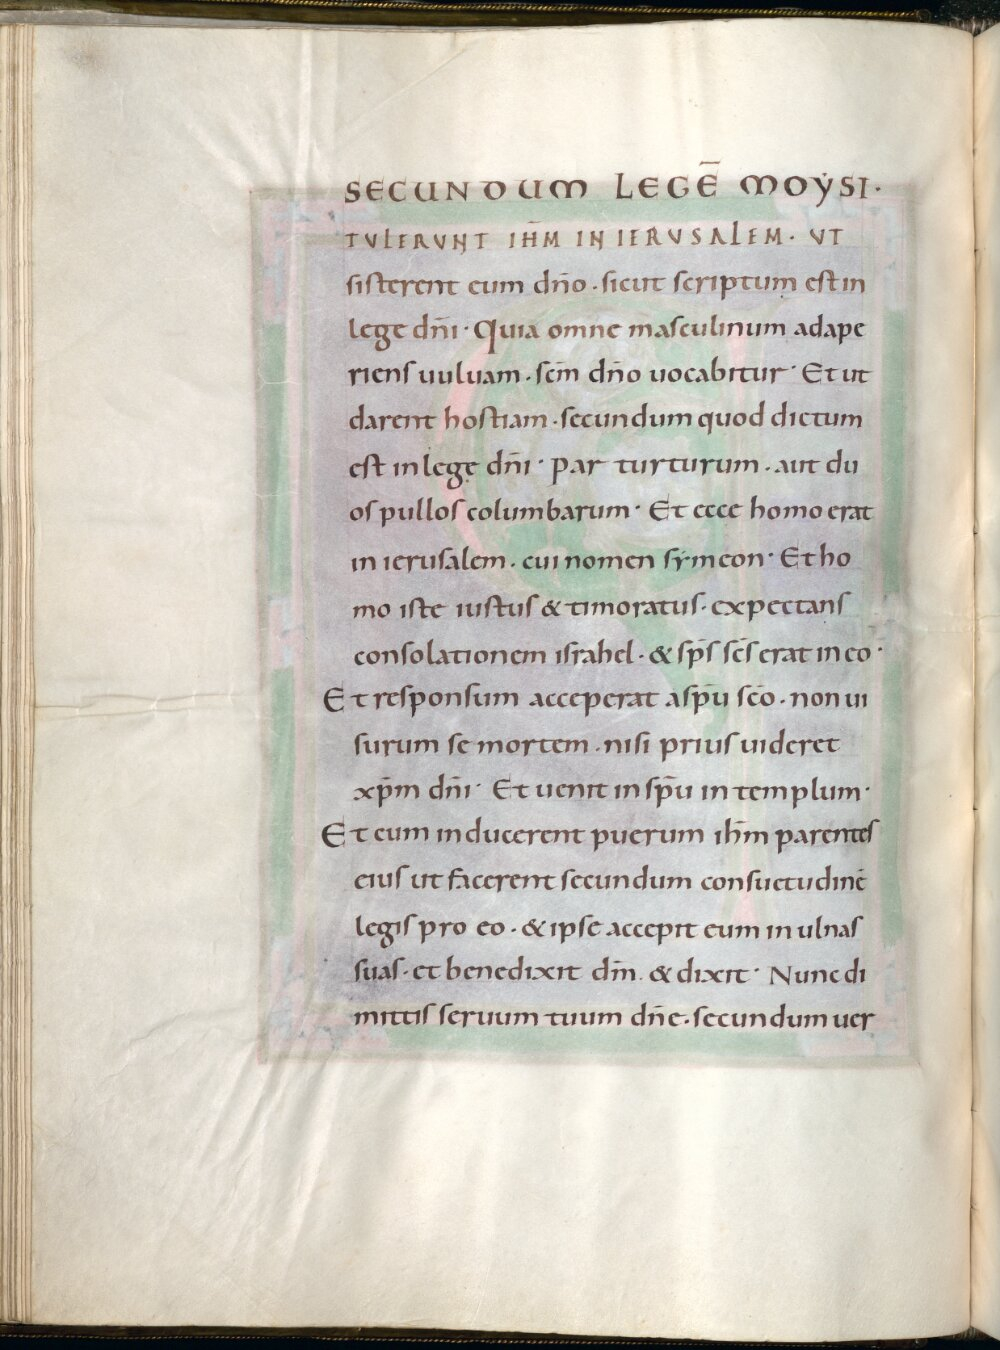 SECUNDUM LEGĒ MOẎSI·
TULERUNT IH̄M IN IERUSALEM· UT
sisterent eum dn̄o · sicut scriptum est in
lege dn̄i · Quia omne masculinum adape
riens uuluam · scm̄ dn̄o uocabitur · Et ut
darent hostiam · secundum quod dictum
est in lege dn̄i · par turturum · aut du
os pullos columbarum · Et ecce homo erat
in ierusalem · cui nomen sẏmeon · Et ho
mo iste iustus & timoratus · expectans
consolationem israhel · & sp̄s sc̄s erat in eo ·
Et responsum acceperat a sp̄u sc̄o · non ui
surum se mortem · nisi prius uideret
xp̄m dn̄i · Et uenit in sp̄u in templum ·
Et cum inducerent puerum ih̄m parentes
eius ut facerent secundum consuetudinē
legis pro eo · & ipse accepit eum in ulnas
suas · et benedixit dm̄ · & dixit · Nunc di
mittis seruum tuum dn̄e · secundum uer